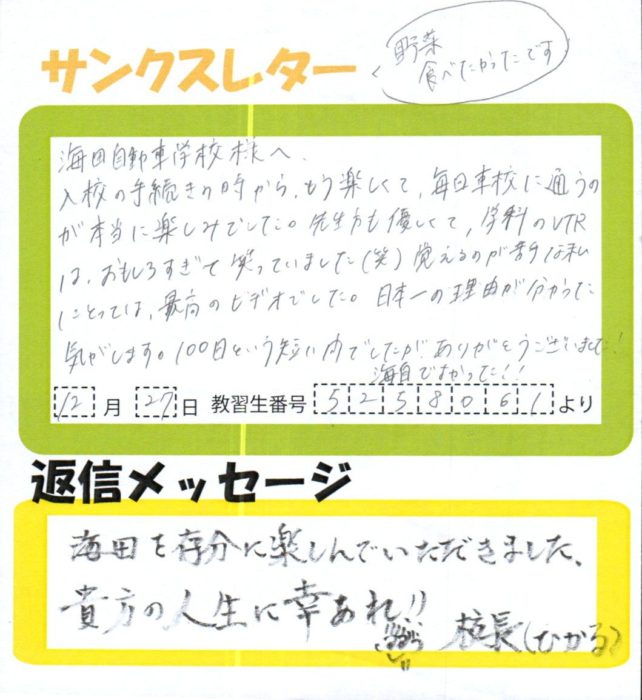 サンクスレター
野菜
食べたかったです
海田自動車学校様へ
入校の手続きの時から、もう楽しくて、毎日車校に通うの
が本当に楽しみでした。先生方も優しくて、学科のVTR
は、おもしろすぎて笑っていました(笑)覚えるのが苦手な私
にとっては、最高のビデオでした。日本一の理由が分かった
気がします。100日という短い内でしたがありがとうございました!
海自でよかった!!
12月27日 教習生番号 5258061より
返信メッセージ
海田を存分に楽しんでいただきました、
貴方の人生に幸あれ!!
校長(ひかる)